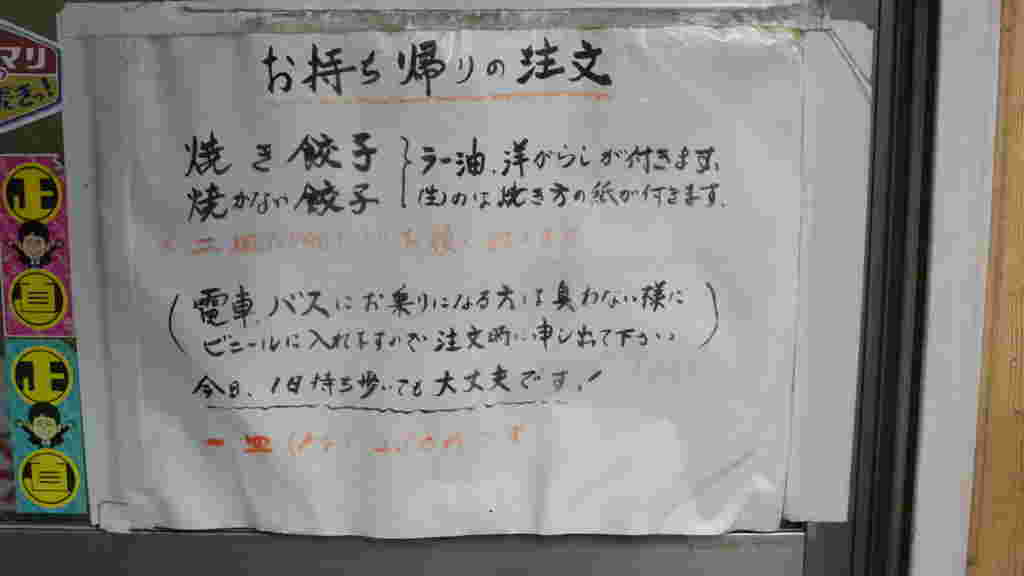 お持ち帰りの注文
焼き餃子
焼かない餃子
ラー油、洋がらしが付きます。
(生)のは焼き方の紙が付きます。
(電車、バスにお乗りになる方は臭わない様に
ビニールに入れますので注文時に申し出て下さい)
今日、1日持ち歩いても大丈夫です!
一皿
マリ